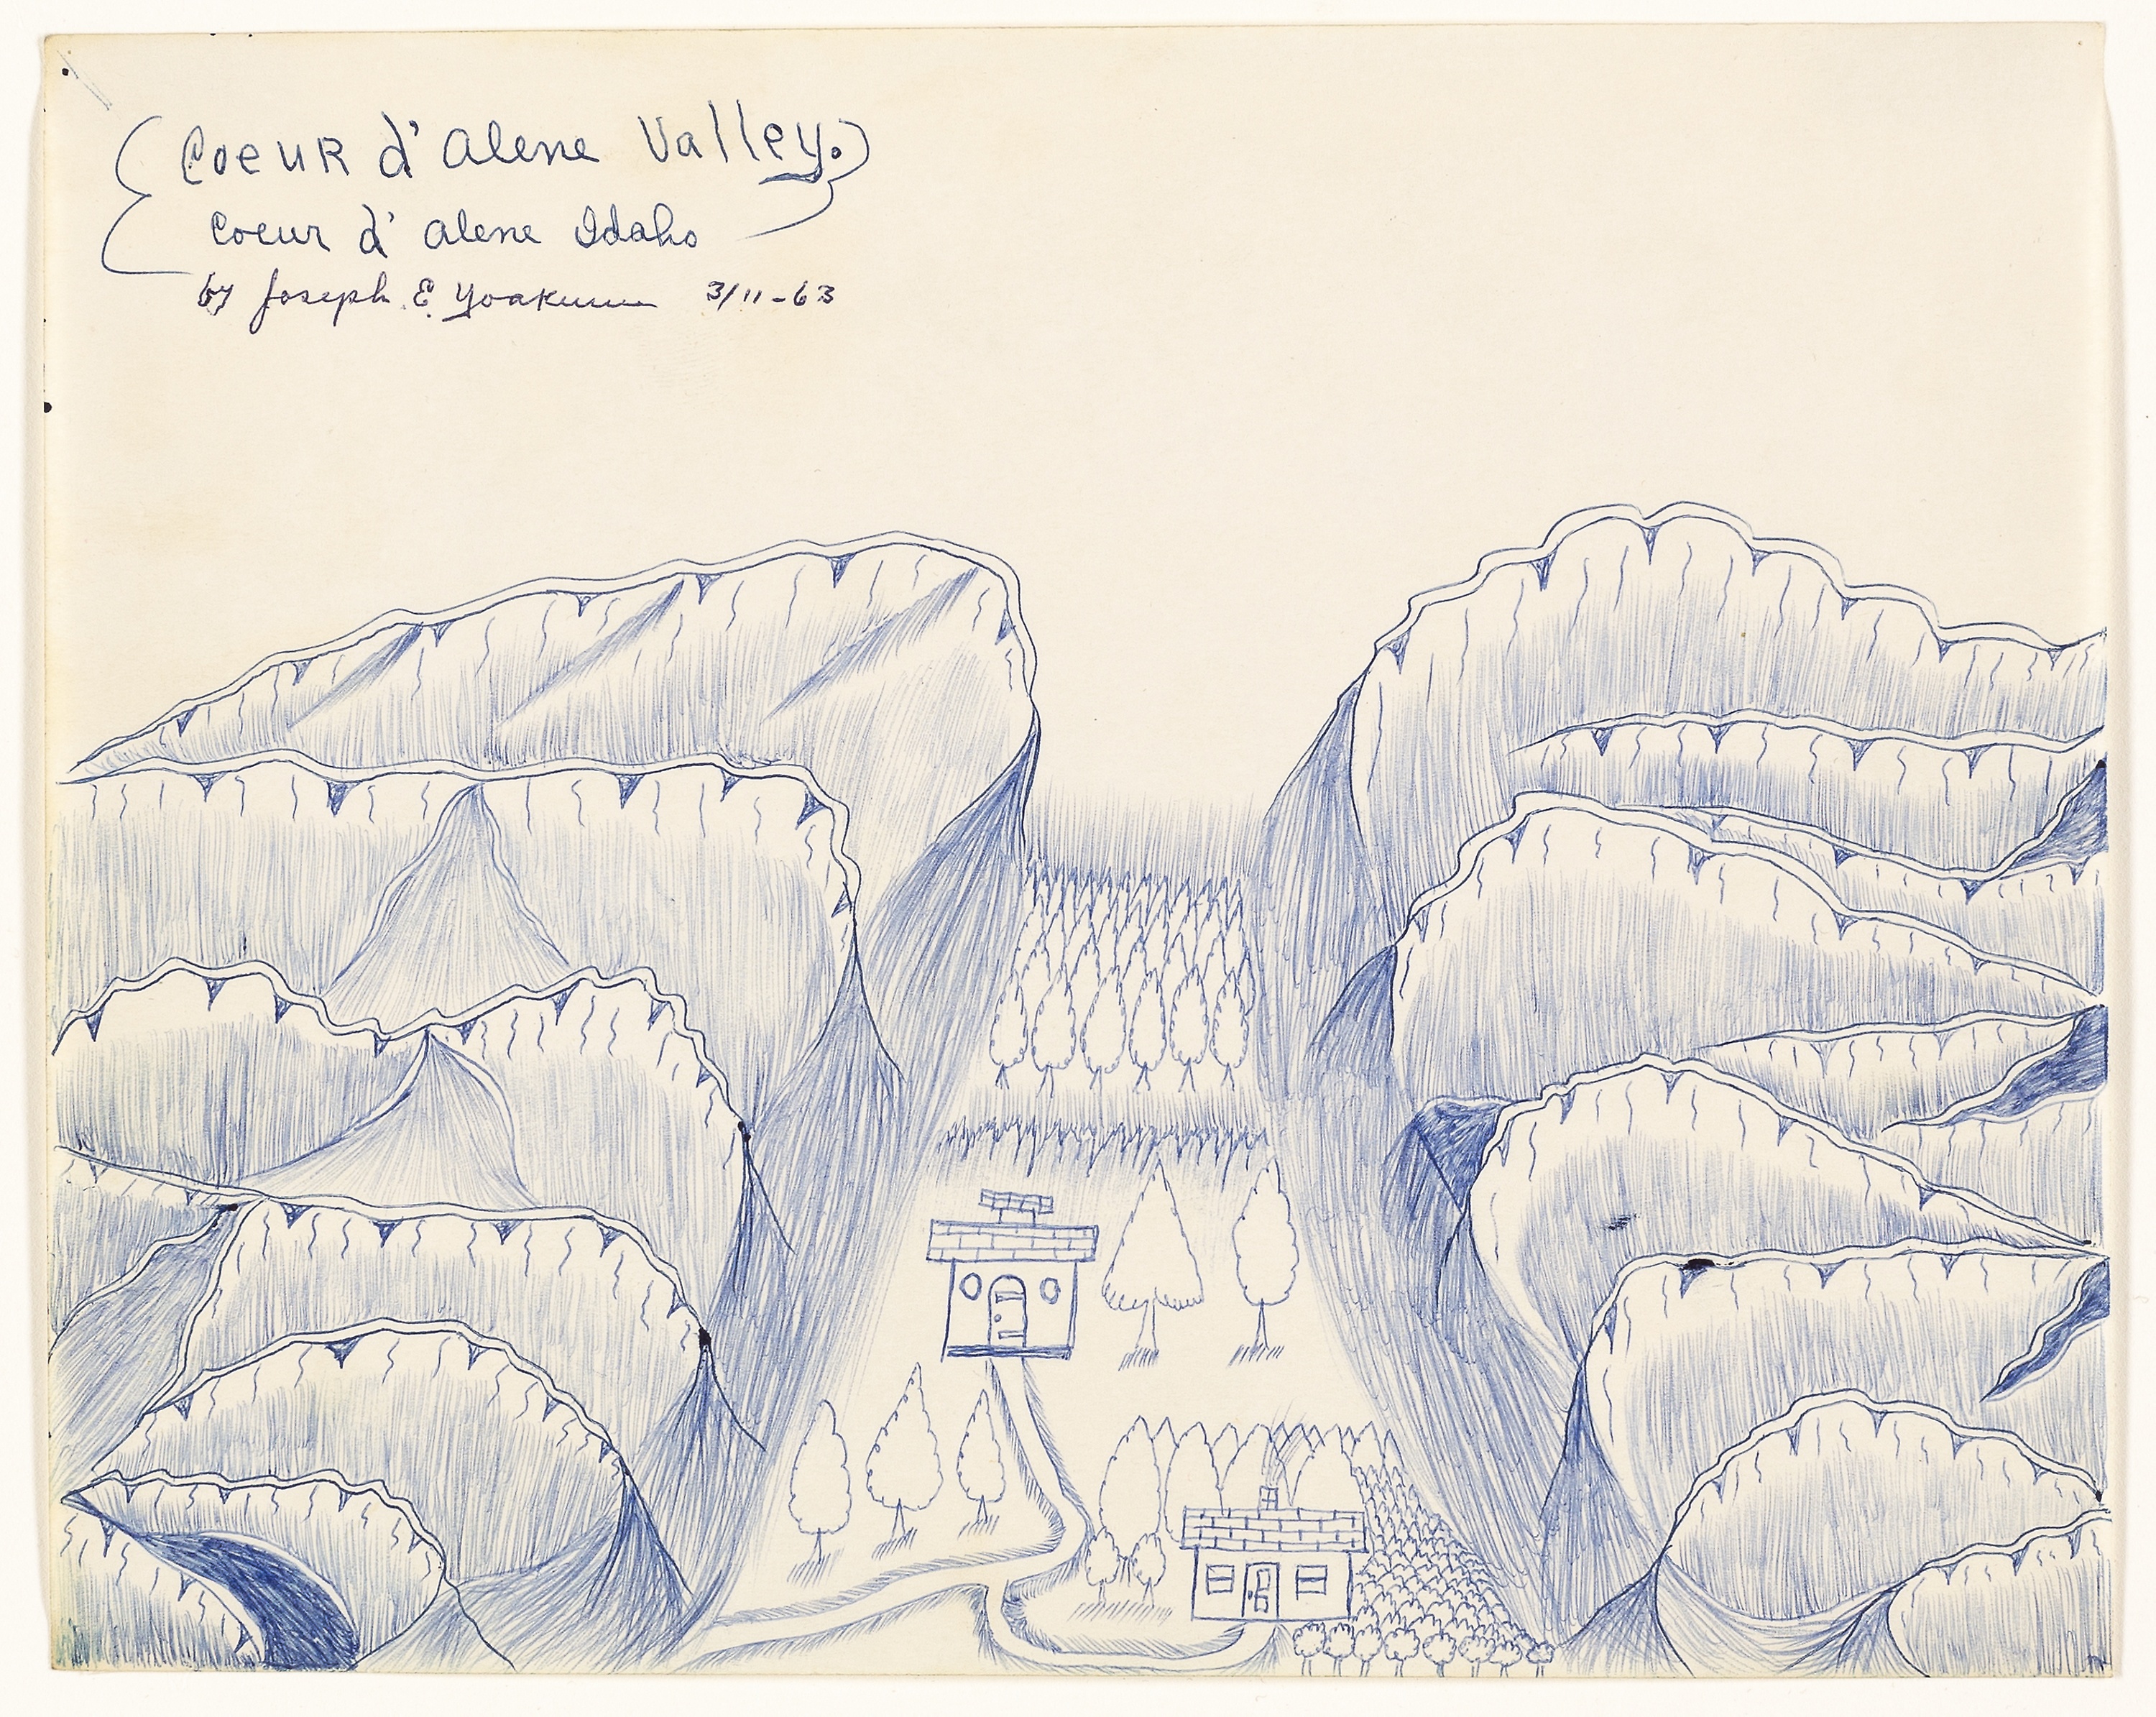 Coeur d'Alene Valley.
Coeur d'Alene Idaho
by Joseph E. Yoakum 3/11-63